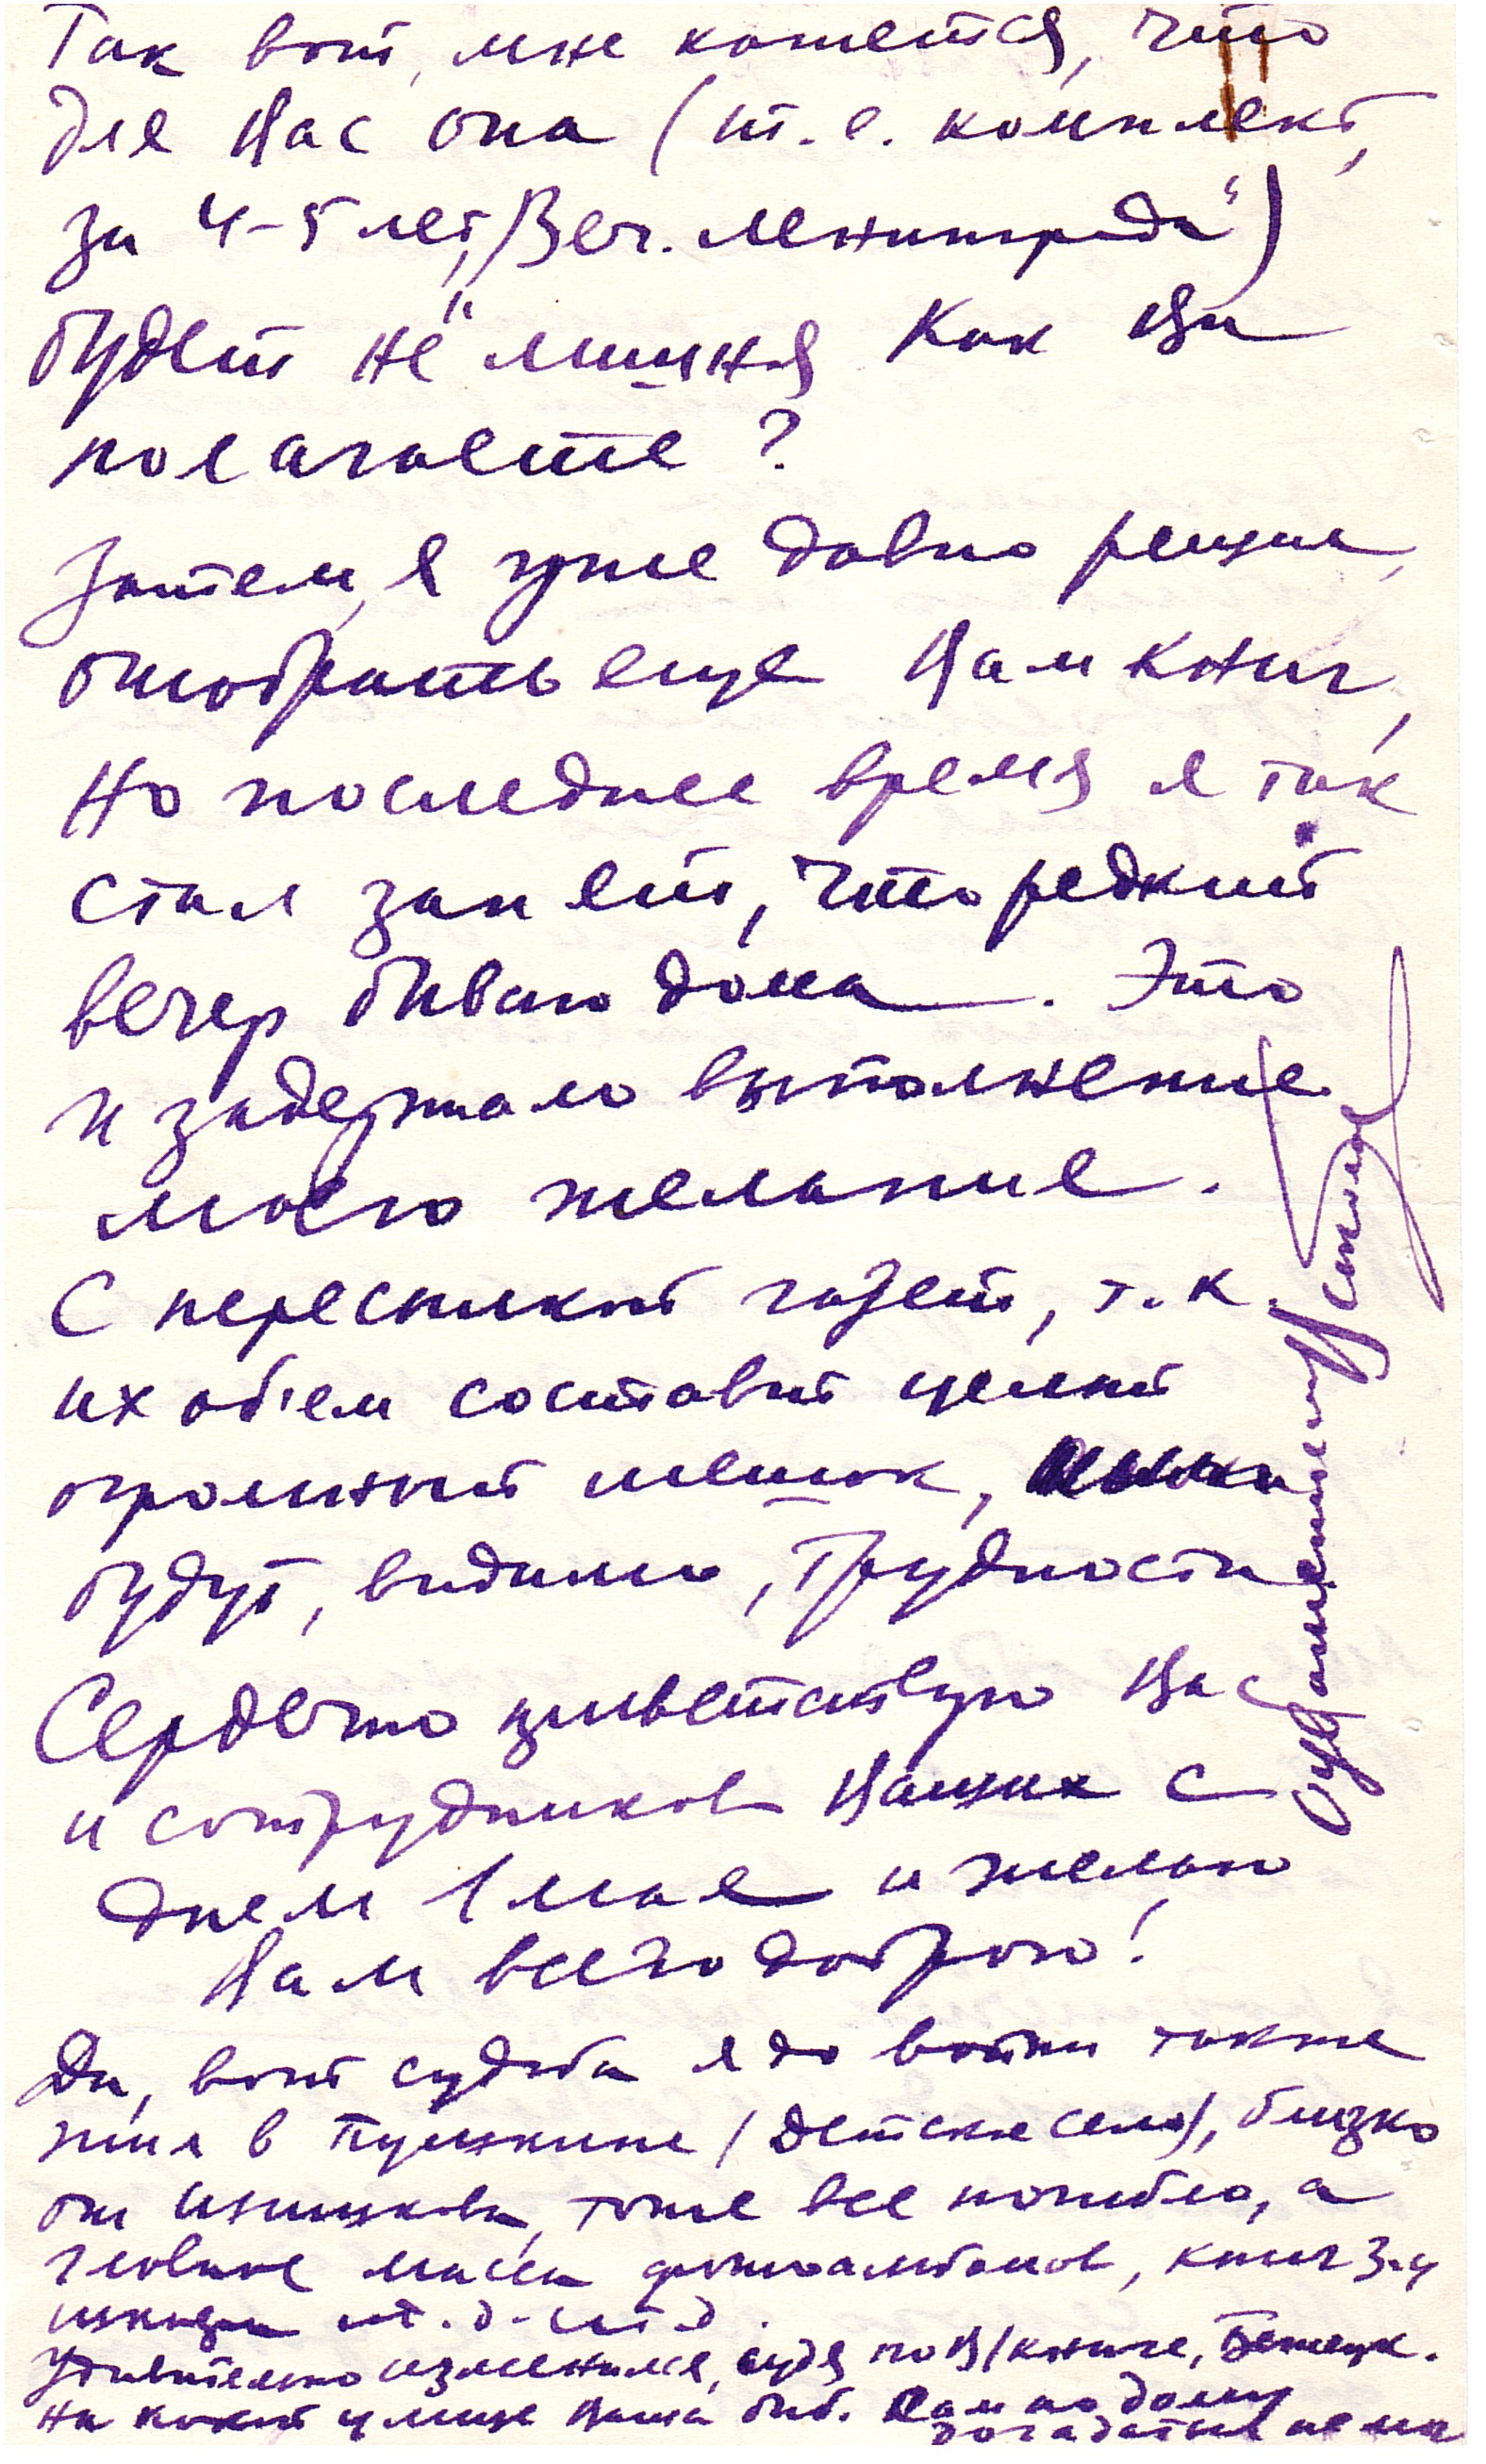 Так вот, мне кажется, что
для Вас она (т.е. комплект,
за 4-5 лет, "Веч. Ленинграда")
будет не лишняя Как Вы
полагаете?
Затем, я уже давно решил,
отобрать еще Вам книг,
но последнее время я так
стал занят, что редкий
вечер бываю дома. Это
и задержало выполнение
моего желания.
С пересылкой газет, т.к.
их об'ем составит целый
огромный мешок,
будут, видимо, трудности
Сердечно приветствую Вас
и сотрудников Ваших с
днем 1 мая и желаю
Вам всего доброго!
С уважением
Да, вот судьба я до войны также
жил в Пушкине (Детское село), близко
от тоже все погибло, а
главное масса фотоальбомов, книг 3-4
шкафа и т.д. и т.д.
Удивительно изменился, судя по В/книге, Бежецк.
На какой улице Ваша биб. Сам по дому
догадаться не мог